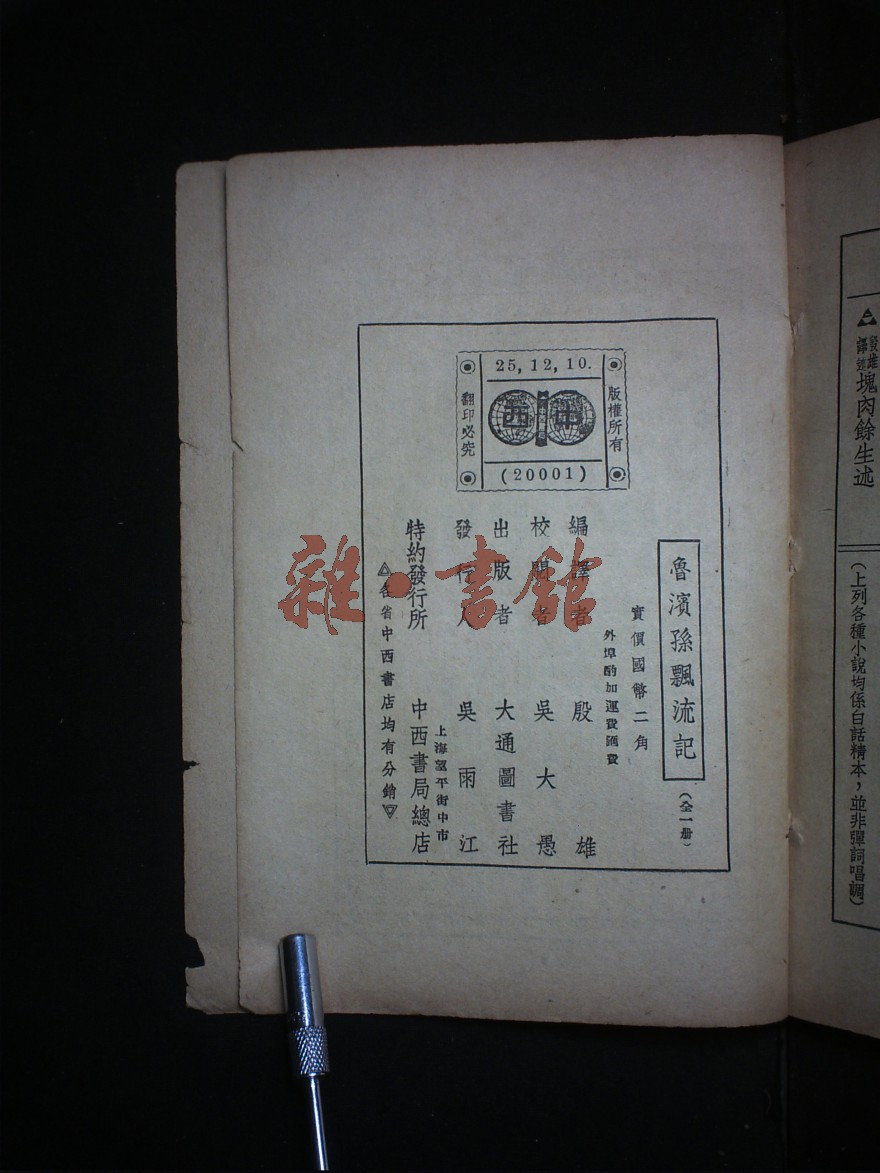 ▲殷雄譯述塊肉餘生述
(上列各種小說均係白話精本，並非彈詞唱調)
25, 12, 10.
版權所有
中西
翻印必究
(20001)
魯濱孫飄流記
(全一册)
實價國幣二角
外埠酌加運費匯費
編譯者 殷雄
校閱者 吳大愚
出版者 大通圖書社
發行人 吳雨江
上海望平街中市
特約發行所 中西書局總店
△各省中西書店均有分銷▽
雜·書館